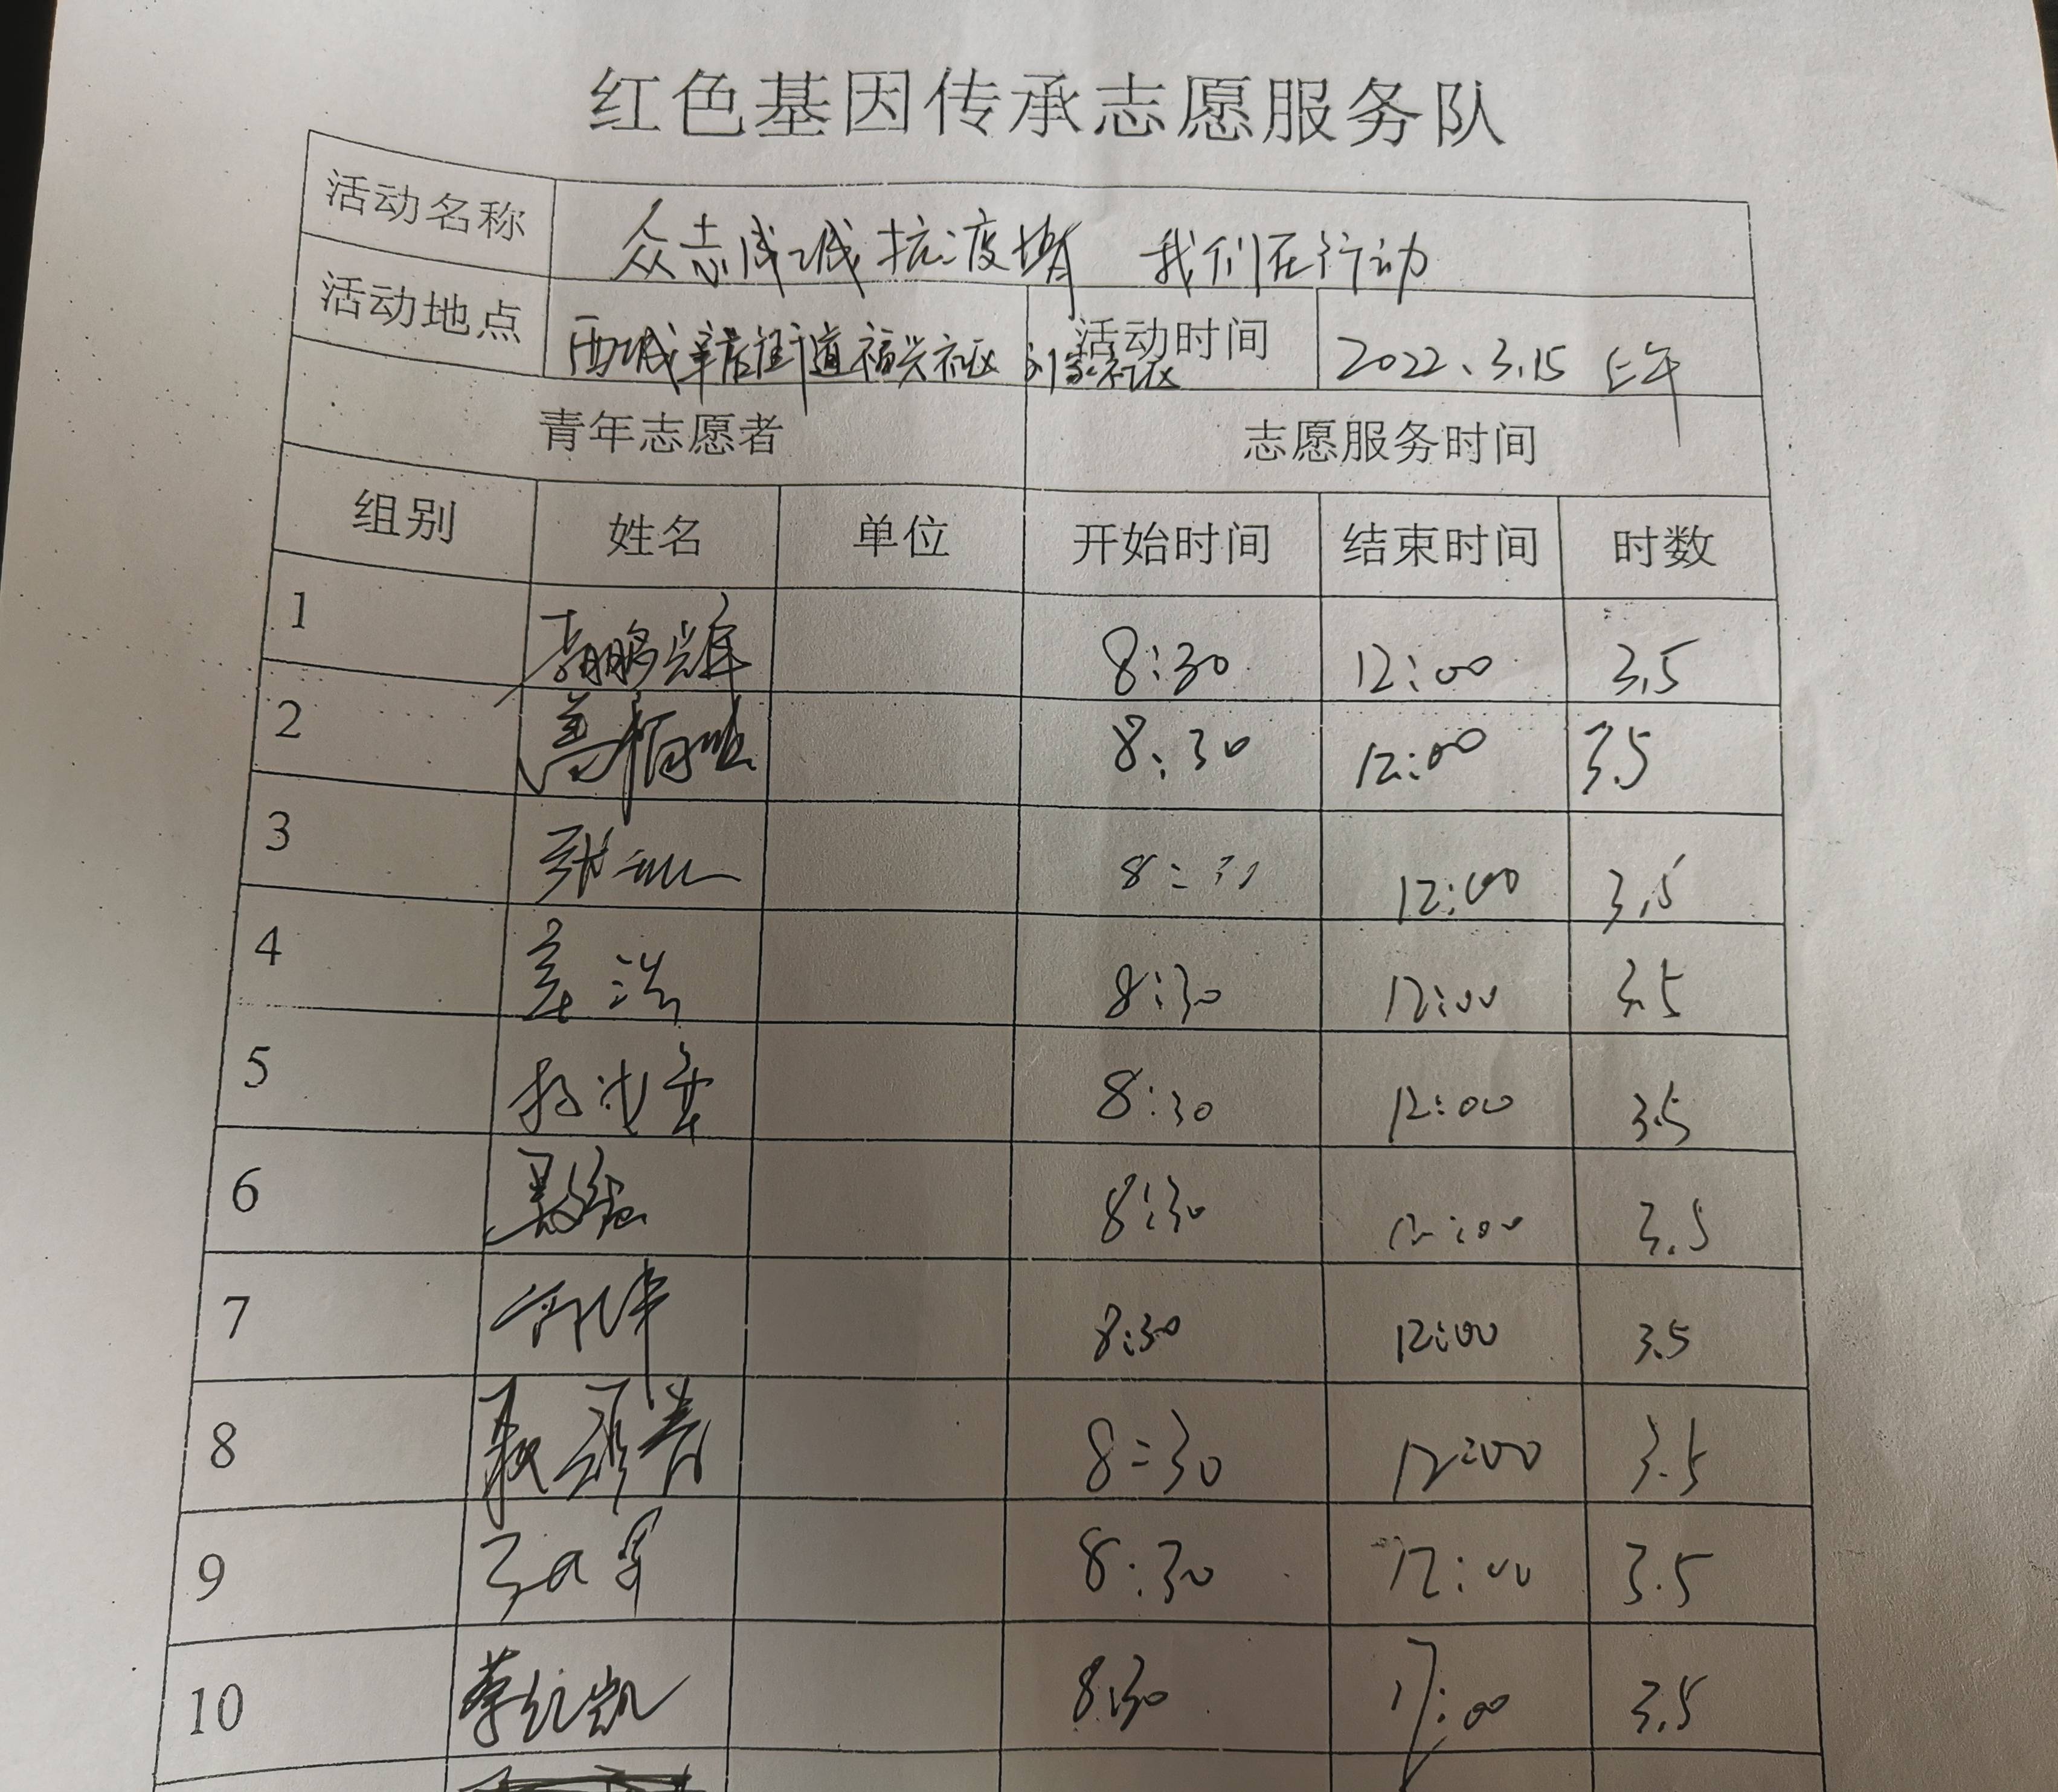 红色基因传承志愿服务队
活动名称 众志成城抗疫情 我们在行动
活动地点 西城辛店街道福兴社区 刘家社区 活动时间 2022.3.15 上午
青年志愿者 志愿服务时间
组别 姓名 单位 开始时间 结束时间 时数
1 8:30 12:00 3.5
2 8:30 12:00 3.5
3 8:30 12:00 3.5
4 姜浩 8:30 12:00 3.5
5 8:30 12:00 3.5
6 8:30 12:00 3.5
7 8:30 12:00 3.5
8 8:30 12:00 3.5
9 8:30 12:00 3.5
10 8:30 3.5